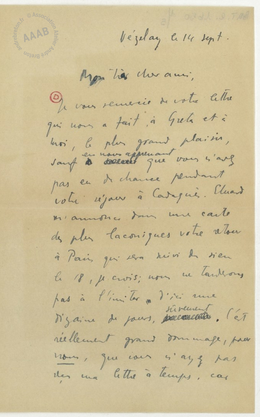 AAAB
Vézelay le 14 sept.
Mon très cher ami,
Je vous remercie de votre lettre
qui nous a fait, à Greta et à
moi, le plus grand plaisir,
sauf en nous apprenant que vous n'ayez
pas eu de chance pendant
votre séjour à Cadaqués. Eluard
m'annonce dans une carte
des plus laconiques votre retour
à Paris qui sera suivi du sien
le 18, je crois; nous ne tarderons
pas à l'imiter. D'ici une
dizaine de jours, sûrement. C'est
réellement grand dommage, pour
nous, que vous n'ayez pas
ma lettre à temps, car